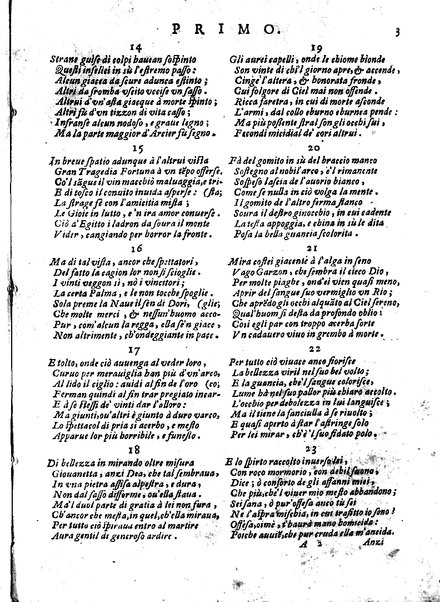 PRIMO. 3
14
Strane guise di colpi hauean sospinto
Questi infelici in sù l'estremo passo:
Alcun giacea da scure ucciso estinto;
Altri da fromba uscito uccise vn sasso.
Altrui d'vn'asta giacque à morte spinto;
Altri fù d'vn tizzon di vita casso;
Infranse alcun nodoso, e graue legno;
Ma la parte maggior d'Arcier fù segno.
15
In breue spatio adunque à l'altrui vista
Gran Tragedia Fortuna à vn tẽpo offerse.
Co'l sãgue il vin macchiò maluaggia, e tri-
E di tosco il conuito inonda asperse: (sta;
La strage sè con l'amicitia mista;
Le Gioie in lutto, e'n ira amor conuerse.
Ciò d'Egitto i ladron da soura il monte
Vider, cangiando per horror la fronte.
16
Ma di tal vista, ancor che spettatori,
Del fatto la cagion lor non si scioglie.
I vinti veggon sì, nò i vincitori;
La certa Palma, e le non tocche spoglie.
Sola preme la Naue il sen di Dori, (glie;
Che molte merci, & nessun'huomo acco-
Pur, com'alcun la regga, ella se'n giace,
Non altrimente, ch'ondeggiante in pace.
17
E tolto, onde ciò auuenga al veder loro,
Curuo per merauiglia han più d'un'arco,
Al lido il ciglio: auidi al fin de l'oro (co;
Ferman quindi al fin trar pregiato incar-
E à se stessi dè vinti dar l'alloro:
Ma giunti, ou'altri è giunto à duro varco,
Lo spettacol di pria sì acerbo, e mesto
Apparue lor più horribile, e funesto.
18
Di bellezza in mirando oltre misura
Giouanetta, anzi Dea, che tal sembraua,
In vna pietra assisa alpestra, e dura,
Non dal sasso difforme, ou'ella staua.
Ma'l duol parte di gratia à lei non fura,
Ch'ancor che mesta, in quel, ch'ella miraua,
Per tutto ciò spiraua entro al martire
Aura gentil di generoso ardire.
19
Gli aurei capelli, onde le chiome bionde
Son vinte di chi'l giorno apre, & accende,
Cinge l'altera, & honorata fronde,
Cui folgore di Ciel mai non offende.
Ricca faretra, in cui di morte ascende
L'armi, dal collo eburno eburnea pende:
Ma più possente stral son gli occhi sui,
Fecondi micidial de' cori altrui.
20
Fà del gomito in sù del braccio manco
Sostegno al nobil'arco, e'l rimanente
Sospeso lascia de l'auorio bianco,
Come se nulla in ciò volga la mente:
Il gomito de l'altro ferma stanco
Soura il destro ginocchio, in cui cadente
La testa appoggia, e china in sù le dita
Posa la bella guancia scolorita.
21
Mira costei giacente à l'alga in seno
Vago Garzon, che sembra il cieco Dio,
Per molte piaghe, ond'ei vien quasi meno,
Aprir del sangue suo vermiglio vn Rio;
Che apredo gli occhi alquãto al Ciel sereno,
Qual'huom si desta da profondo oblio:
Così egli par con troppo acerba sorte
Vn cadauero viuo in grembo à morte.
22
Per tutto ciò viuace anco fiorisce
La bellezza viril nel suo bel volto;
E la guancia, che'l sangue colorisce,
Lume hà nel suo pallor più chiaro accolto.
L'occhio per debolezza in lui languisce;
Ma il tiene la fanciulla à se riuolto;
E quasi aperto à star l'astringe solo
Per lei mirar, ch'è'l suo fidato polo.
23
E lo spirto raccolto inuerso lei,
Con roco mormorio, con debil suono,
Dice; ò conforto de gli affanni miei,
Che più, che'l viuer mio mesto abbandono;
Sei sana, ò pur'offesa anco tù sei
Ne l'aspra mischia, in cui trafitto io sono?
Offesa, oime, t'haurà mano homicida:
Poiche auuiè, che pur cruda ella m'ancida.
A 2 Anzi